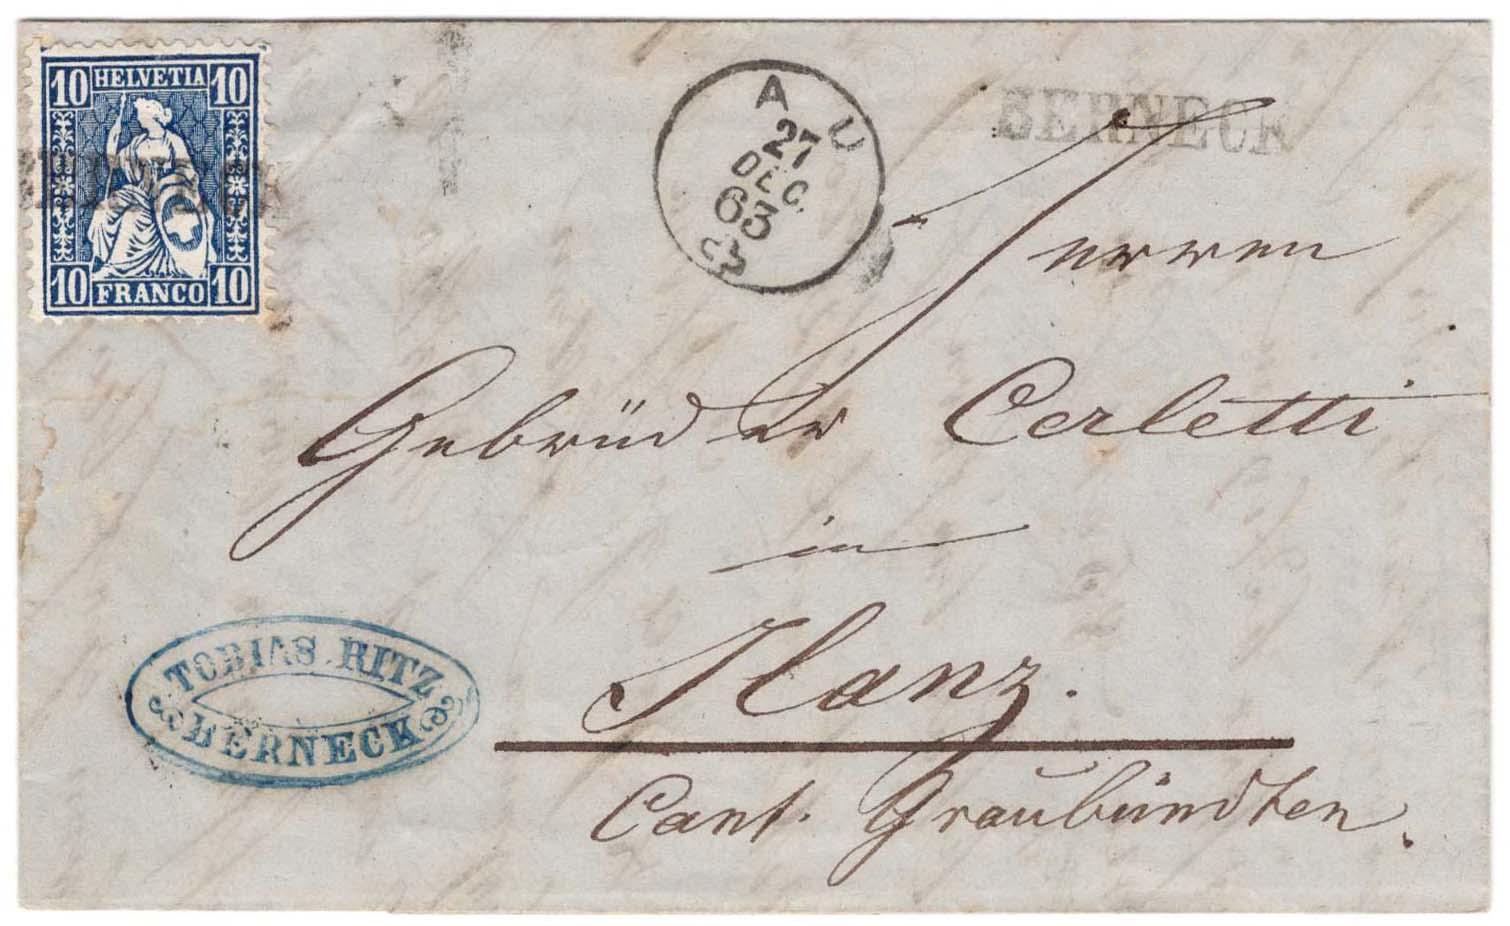 10 HELVETIA 10
BERNECK
10 FRANCO 10
AU
27
DEC.
63
BERNECK
Herren
Gebrüder Cerletti
in
Ilanz.
Cant. Graubündten.
TOBIAS RITZ
BERNECK